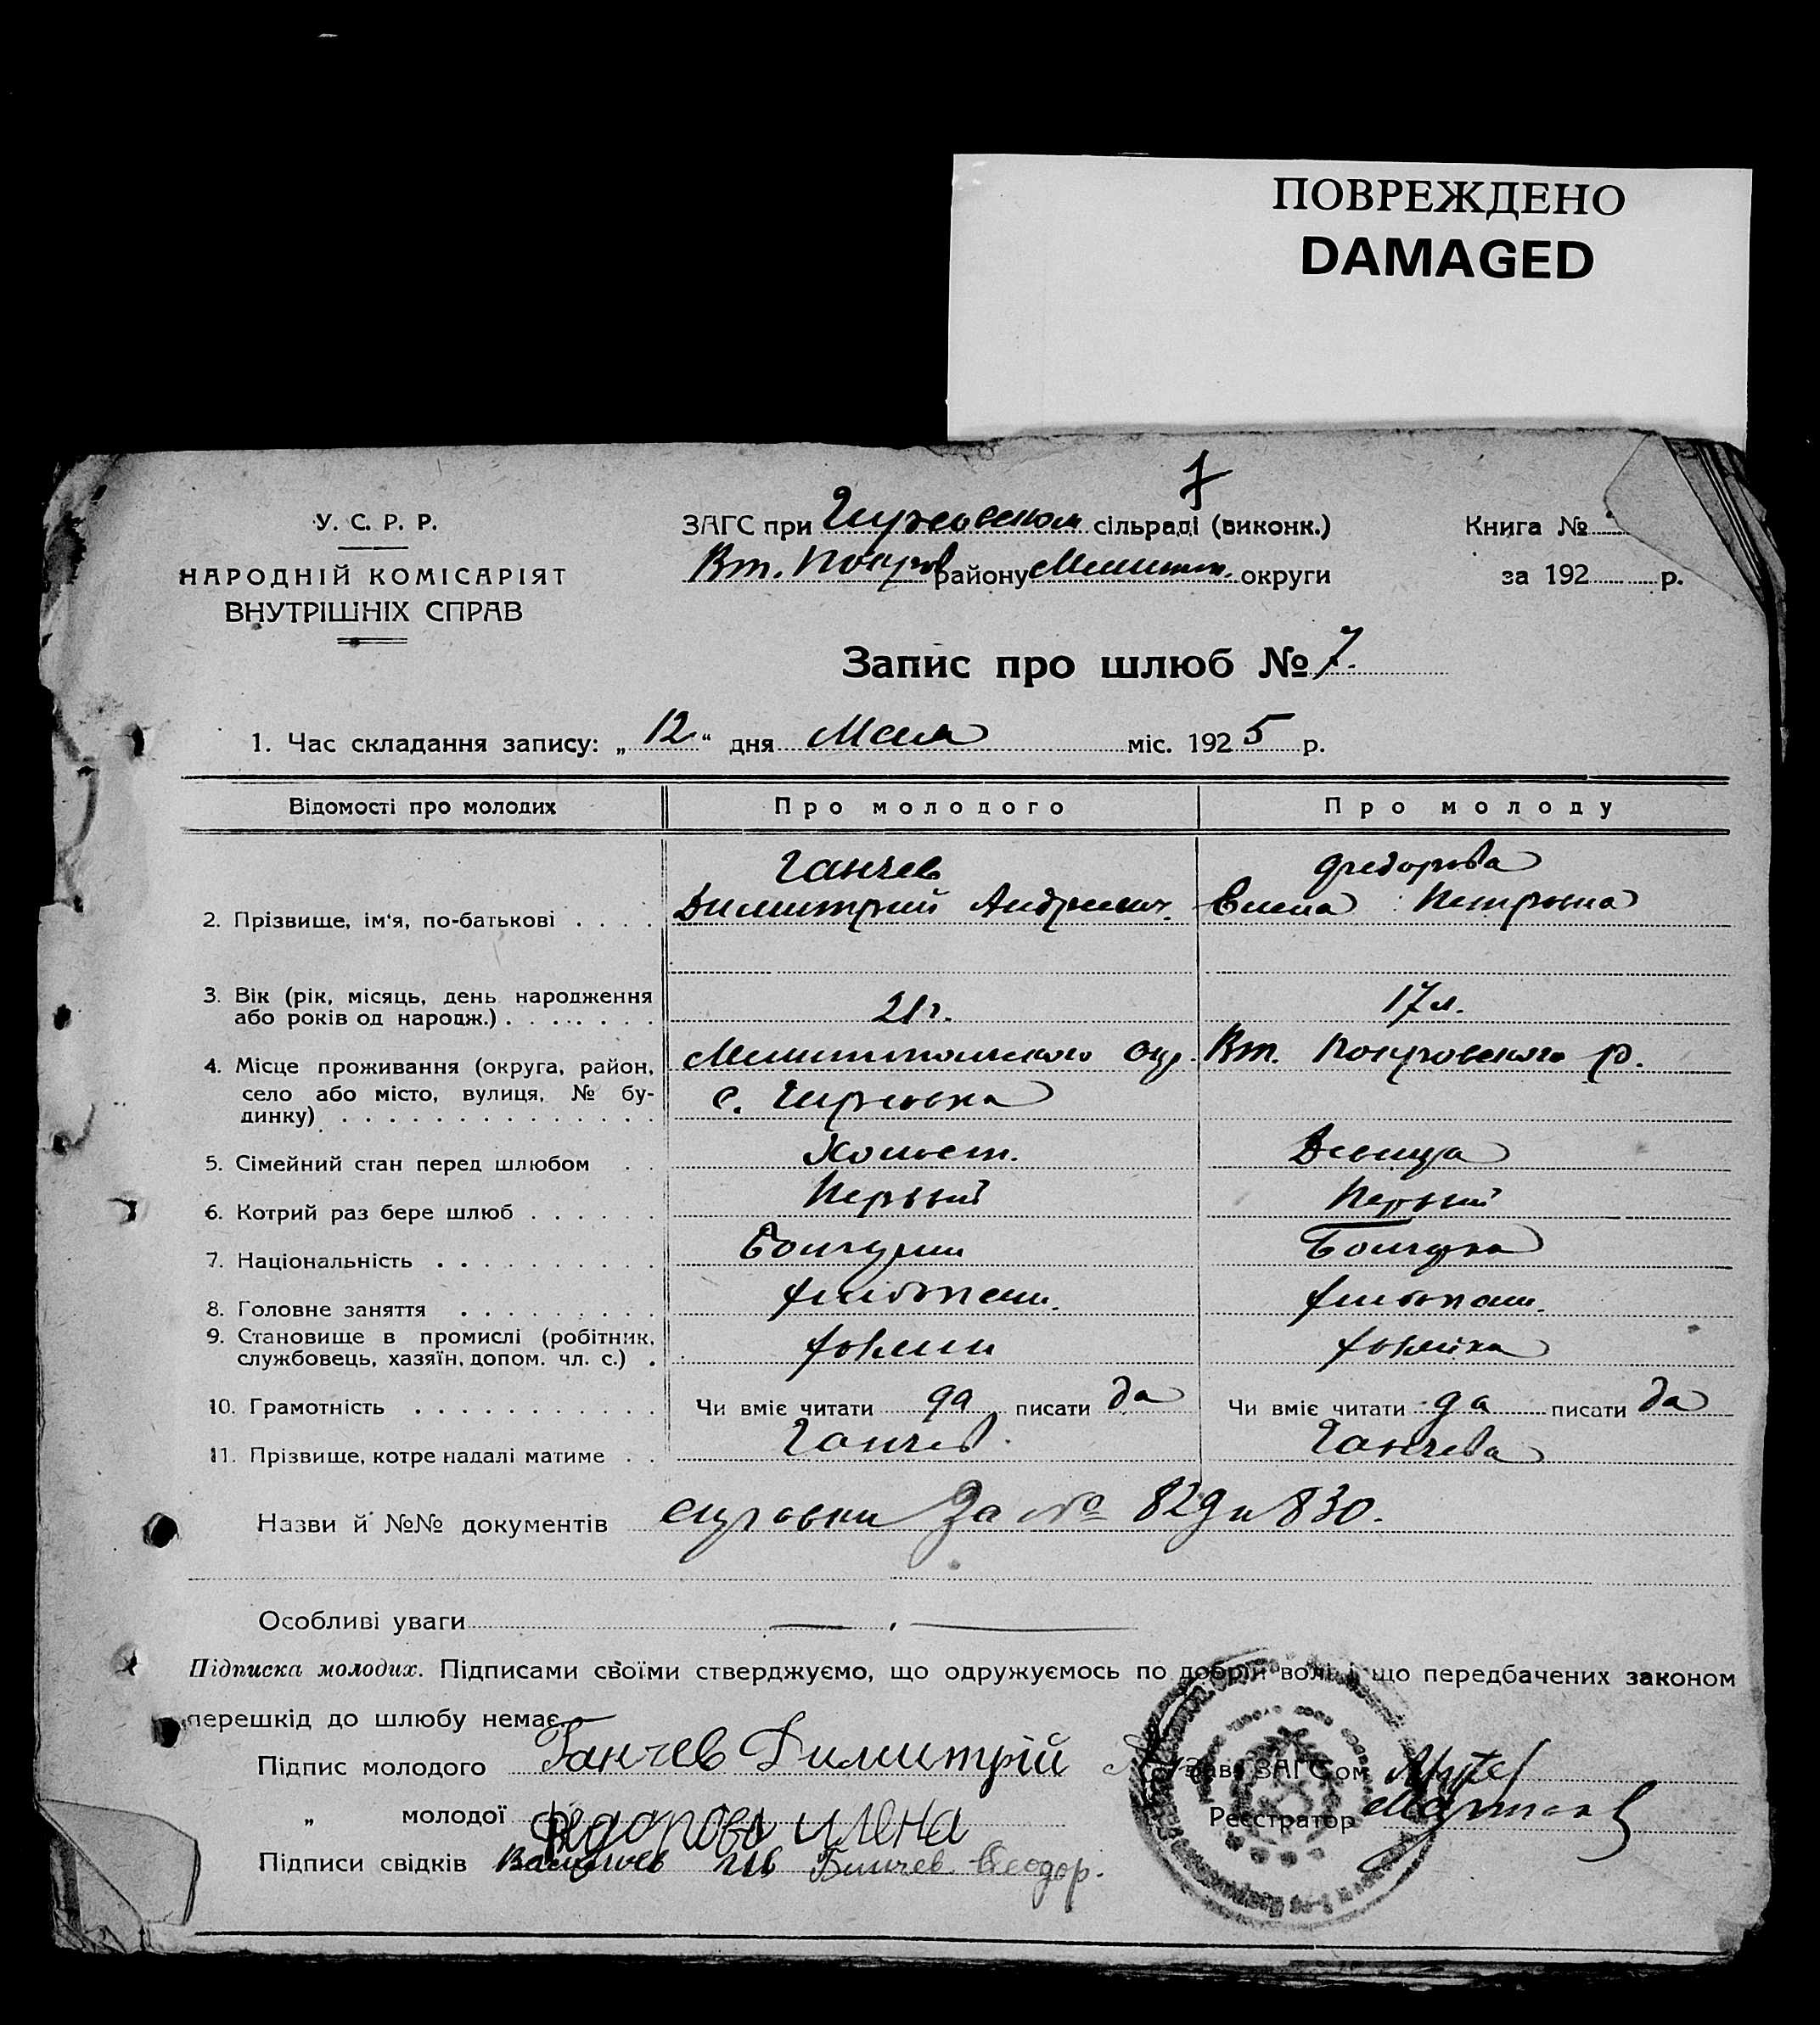 ПОВРЕЖДЕНО
DAMAGED
7
У. С. Р. Р.
НАРОДНІЙ КОМІСАРІЯТ
ВНУТРІШНІХ СПРАВ
ЗАГС при сільраді (виконк.)
Вт. Покров району Мелитоп. округи
Книга №
за 192 р.
Запис про шлюб № 7.
1. Час складання запису: „12“ дня Мая міс. 1925 р.
Відомості про молодих Про молодого Про молоду
Ганчев Федорова
2. Прізвище, ім'я, по-батькові . . . . Димитрий Андреевич. Елена Петровна
3. Вік (рік, місяць, день народження
або років од народж.) . . . . . . . 21 г. 17 л.
4. Місце проживання (округа, район, Мелитопольского окр. Вт. Покровского р.
село або місто, вулиця, № бу-
динку) . . . . . . . . . . . . . . с.
5. Сімейний стан перед шлюбом . . Холост. Девица
6. Котрий раз бере шлюб . . . . . . Первый Первый
7. Національність . . . . . . . . . . Болгарин Болгарка
8. Головне заняття . . . . . . . . . хлебопаш. хлебопаш.
9. Становище в промислі (робітник,
службовець, хазяїн, допом. чл. с.) . хозяин хозяйка
10. Грамотність . . . . . . . . . . . Чи вміє читати да писати да Чи вміє читати да писати да
11. Прізвище, котре надалі матиме . . Ганчев. Ганчева
Назви й №№ документів справки За № 829 и 830.
Особливі уваги
Підписка молодих. Підписами своїми стверджуємо, що одружуємось по добрій волі і що передбачених законом
перешкід до шлюбу немає.
Підпис молодого Ганчев Димитрій Зав. ЗАГС'ом
„ молодої Федорова илена Реєстратор
Підписи свідків